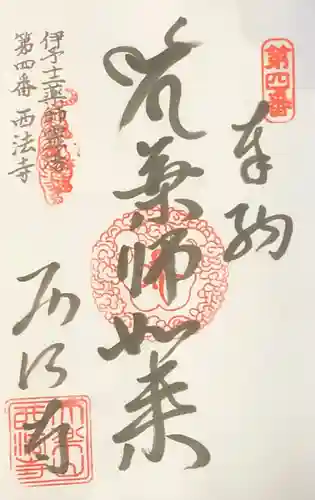 第四番
奉納
薬師如来
伊予十二薬師霊場
第四番 西法寺
西法寺